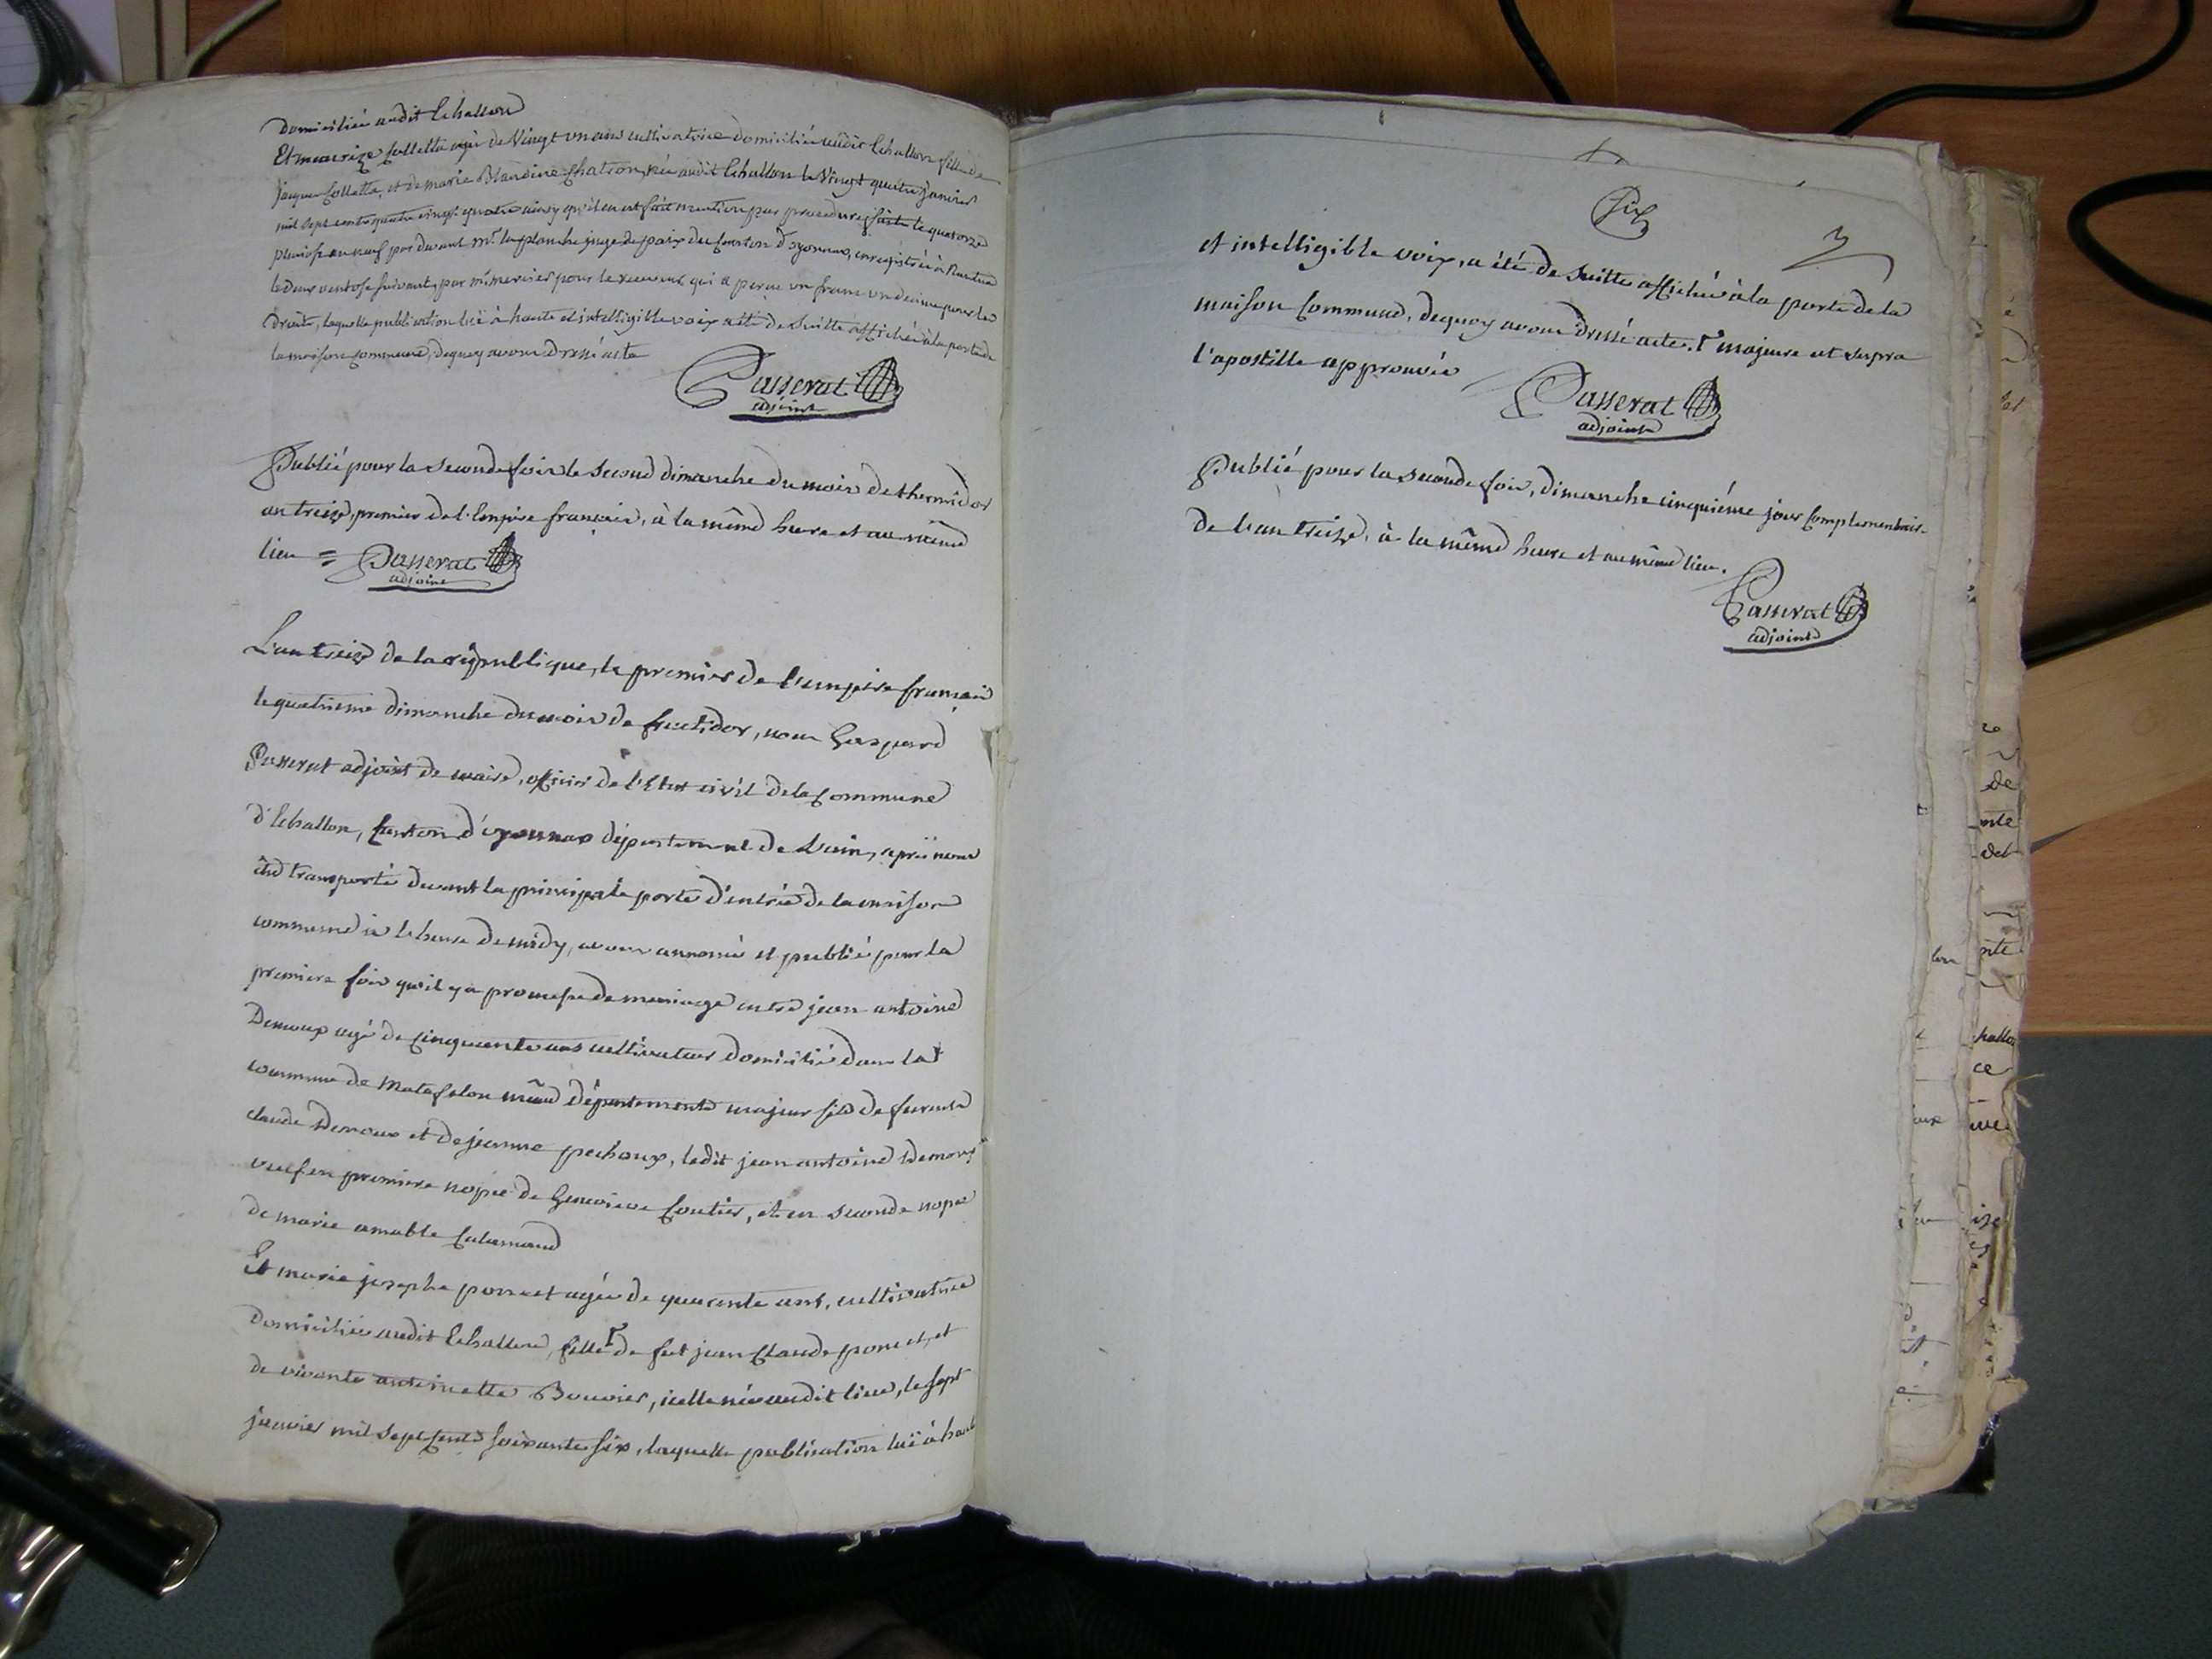 Domiciliée audit Echallon
Et maurize Collette agée de Vingt un ans cultivatrice domiciliée audit Echallon fille de
jacque Collette, et de marie Blandine Chatron, née audit Echallon le Vingt quatre janvier
mil sept cents quatre vingt quatre ainsy qu'il en est fait mention par procedure faite le quatorze
pluviose an neuf par devant mr. laplanche juge de paix du Canton d'oyonnax, enregistrée à Nantua
le deux ventose suivant, par mr. mercier pour le receveur qui a perçu un franc un decime pour les
droits, laquelle publication luë à haute et intelligible voix a été de suitte affichée à la porte de
la maison commune, dequoy avons dressé acte
Passerat
adjoint
Publié pour la seconde fois le second dimanche du mois de thermidor
an treize, premier de l'Empire français, à la même heure et au même
lieu = Passerat
adjoint
L'an treize de la république, le premier de l'empire français
le quatrieme dimanche du mois de fructidor, nous Gaspard
Passerat adjoint de maire, officier de l'Etat civil de la Commune
d'Echallon, Canton d'oyonnax département de l'ain, après nous
être transporté devant la principale porte d'entrée de la maison
commune à l'heure de midy, avons annoncé et publié pour la
premiere fois qu'il y a promesse de mariage entre jean antoine
Demoux agé de cinquante ans cultivateur domicilié dans la
commune de Matafelon même département majeur fils de furent
claude Demoux et de jeanne pechoux, ledit jean antoine Demoux
veuf en premiere nopce de Genevieve Coutier, et en seconde nopce
de marie amable Calamand
Et marie josephe poncet agée de quarante ans, cultivatrice
Domiciliée audit Echallon, fille de feu jean Claude poncet, et
de vivante antoinette Bouvier, icelle née audit lieu, le sept
janvier mil sept cents soixante six, laquelle publication luë à haute
Six
et intelligible voix, a été de suitte affichée à la porte de la
maison Commune, dequoy avons dressé acte. majeure et supra
l'apostille approuvée
Passerat
adjoint
Publié pour la seconde fois, dimanche cinquiéme jour Complementaire
de l'an treize, à la même heure et au même lieu.
Passerat
adjoint